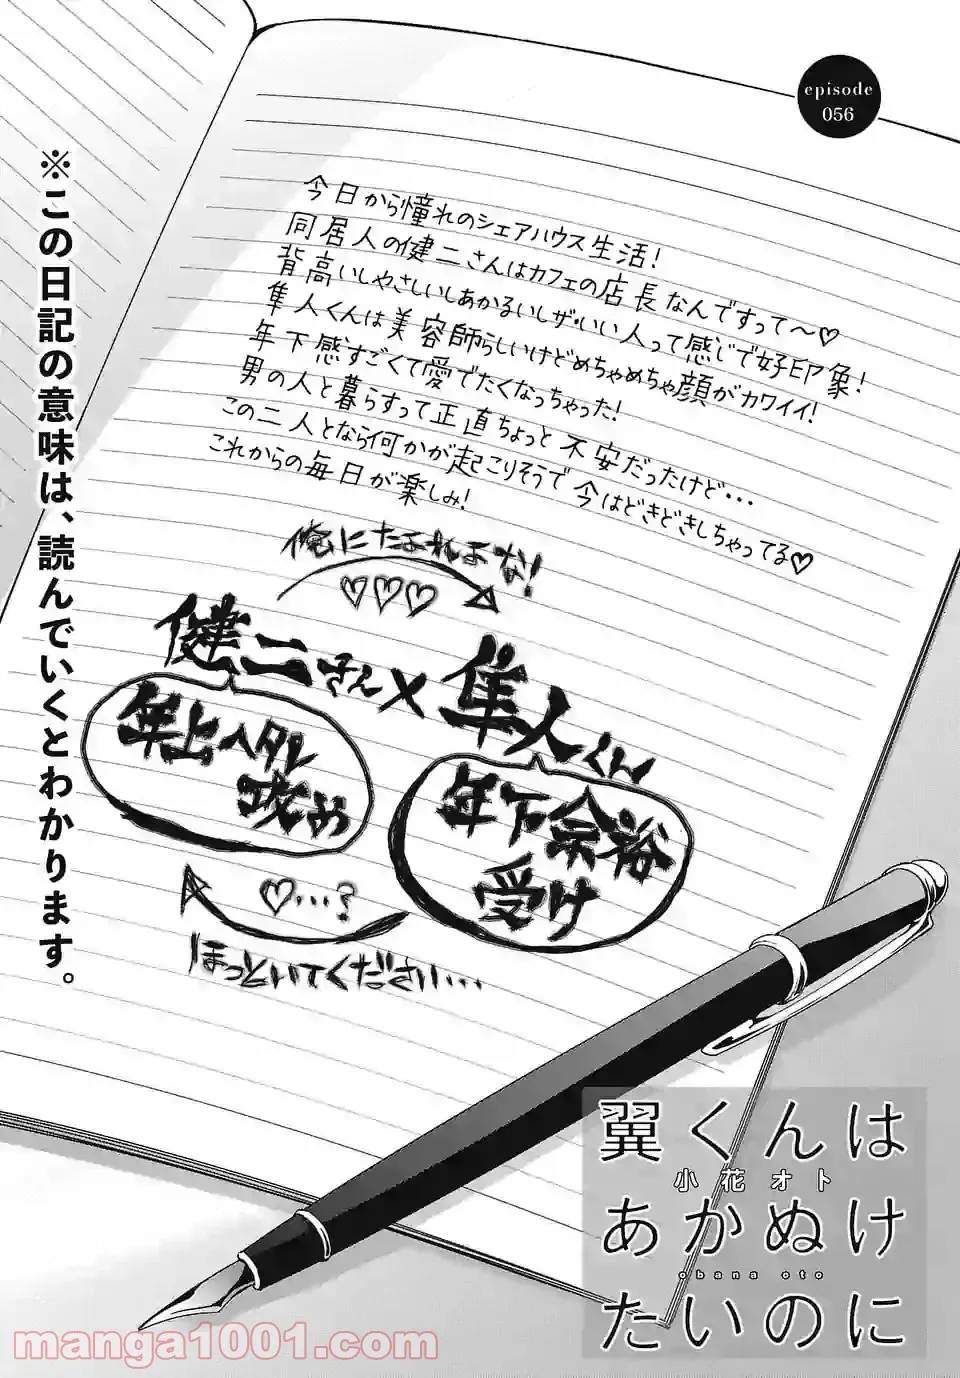 episode
056
※この日記の意味は、読んでいくとわかります。
今日から憧れのシェアハウス生活!
同居人の健二さんはカフェの店長なんですって〜♡
背高いしやさしいしあかるいしザ・いい人って感じで好印象!
隼人くんは美容師らしいけどめちゃめちゃ顔がカワイイ!
年下感すごくて愛でたくなっちゃった!
男の人と暮らすって正直ちょっと不安だったけど・・・
この二人となら何かが起こりそうで今はどきどきしちゃってる♡
これからの毎日が楽しみ!
俺にたよれよな!
♡♡♡
健二さん×隼人くん
年上ヘタレ
攻め
年下余裕
受け
♡…?
ほっといてください…
翼くんは
小花オト
あかぬけ
obana oto
たいのに
manga1001.com